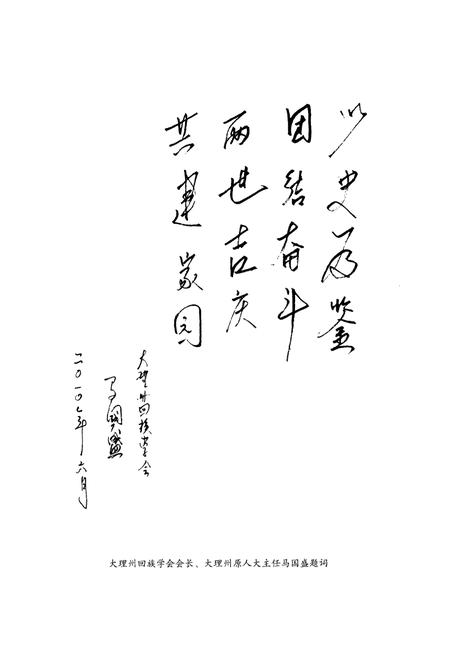 以史为鉴
团结奋斗
两世吉庆
共建家园
大理州回族学会
马國盛
二〇一〇年六月
大理州回族学会会长、大理州原人大主任马国盛题词